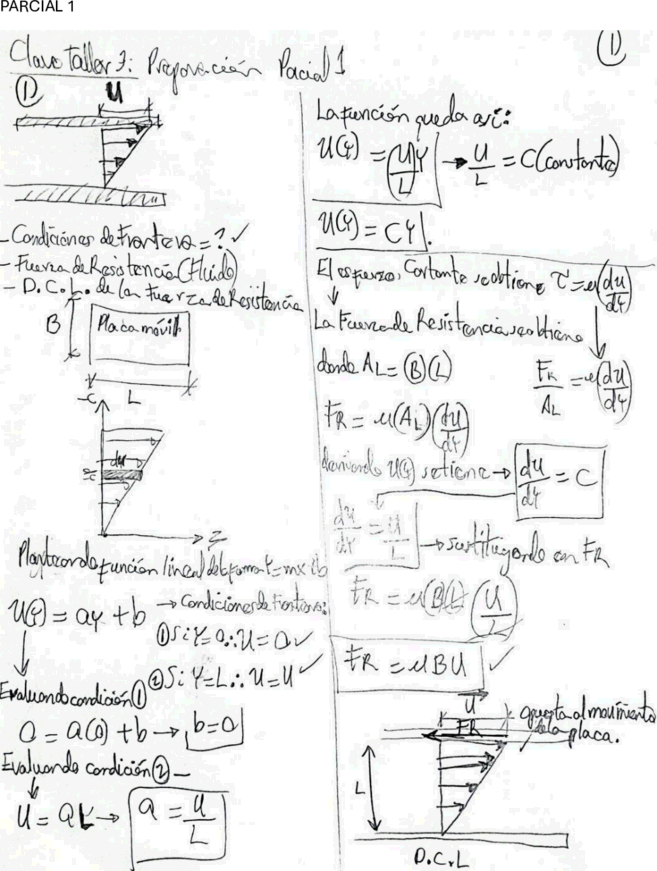 PARCIAL 1
Clave Taller 3: Preparación Pacial 1
①
①
U
- Condiciones de Frontera = ? ✓
- Fuerza de Resistencia (Fluido)
- D.C.L. de la Fuerza de Resistencia
B
Placa móvil
L
du
Planteando función lineal de la forma Y=mx+b
U(Y) = aY + b → Condiciones de Frontera:
① Si Y=0 ∴ U = 0 ✓
② Si Y=L ∴ U = U ✓
Evaluando condición ①
0 = a(0) + b → b=0
Evaluando condición ② -
U = aL → a = U/L
La función queda así:
U(Y) = (U/L)Y → U/L = C (constante)
U(Y) = CY.
El esfuerzo Cortante se obtiene τ = μ(du/dY)
La Fuerza de Resistencia se obtiene
donde AL = (B)(L)
FR/AL = μ(du/dY)
FR = μ(AL)(du/dY)
derivando U(Y) se tiene → du/dY = C
du/dY = U/L → sustituyendo en FR
FR = μ(B)(L)(U/L)
FR = μBU ✓
U
FR
opuesta al movimiento
de la placa.
L
D.C.L